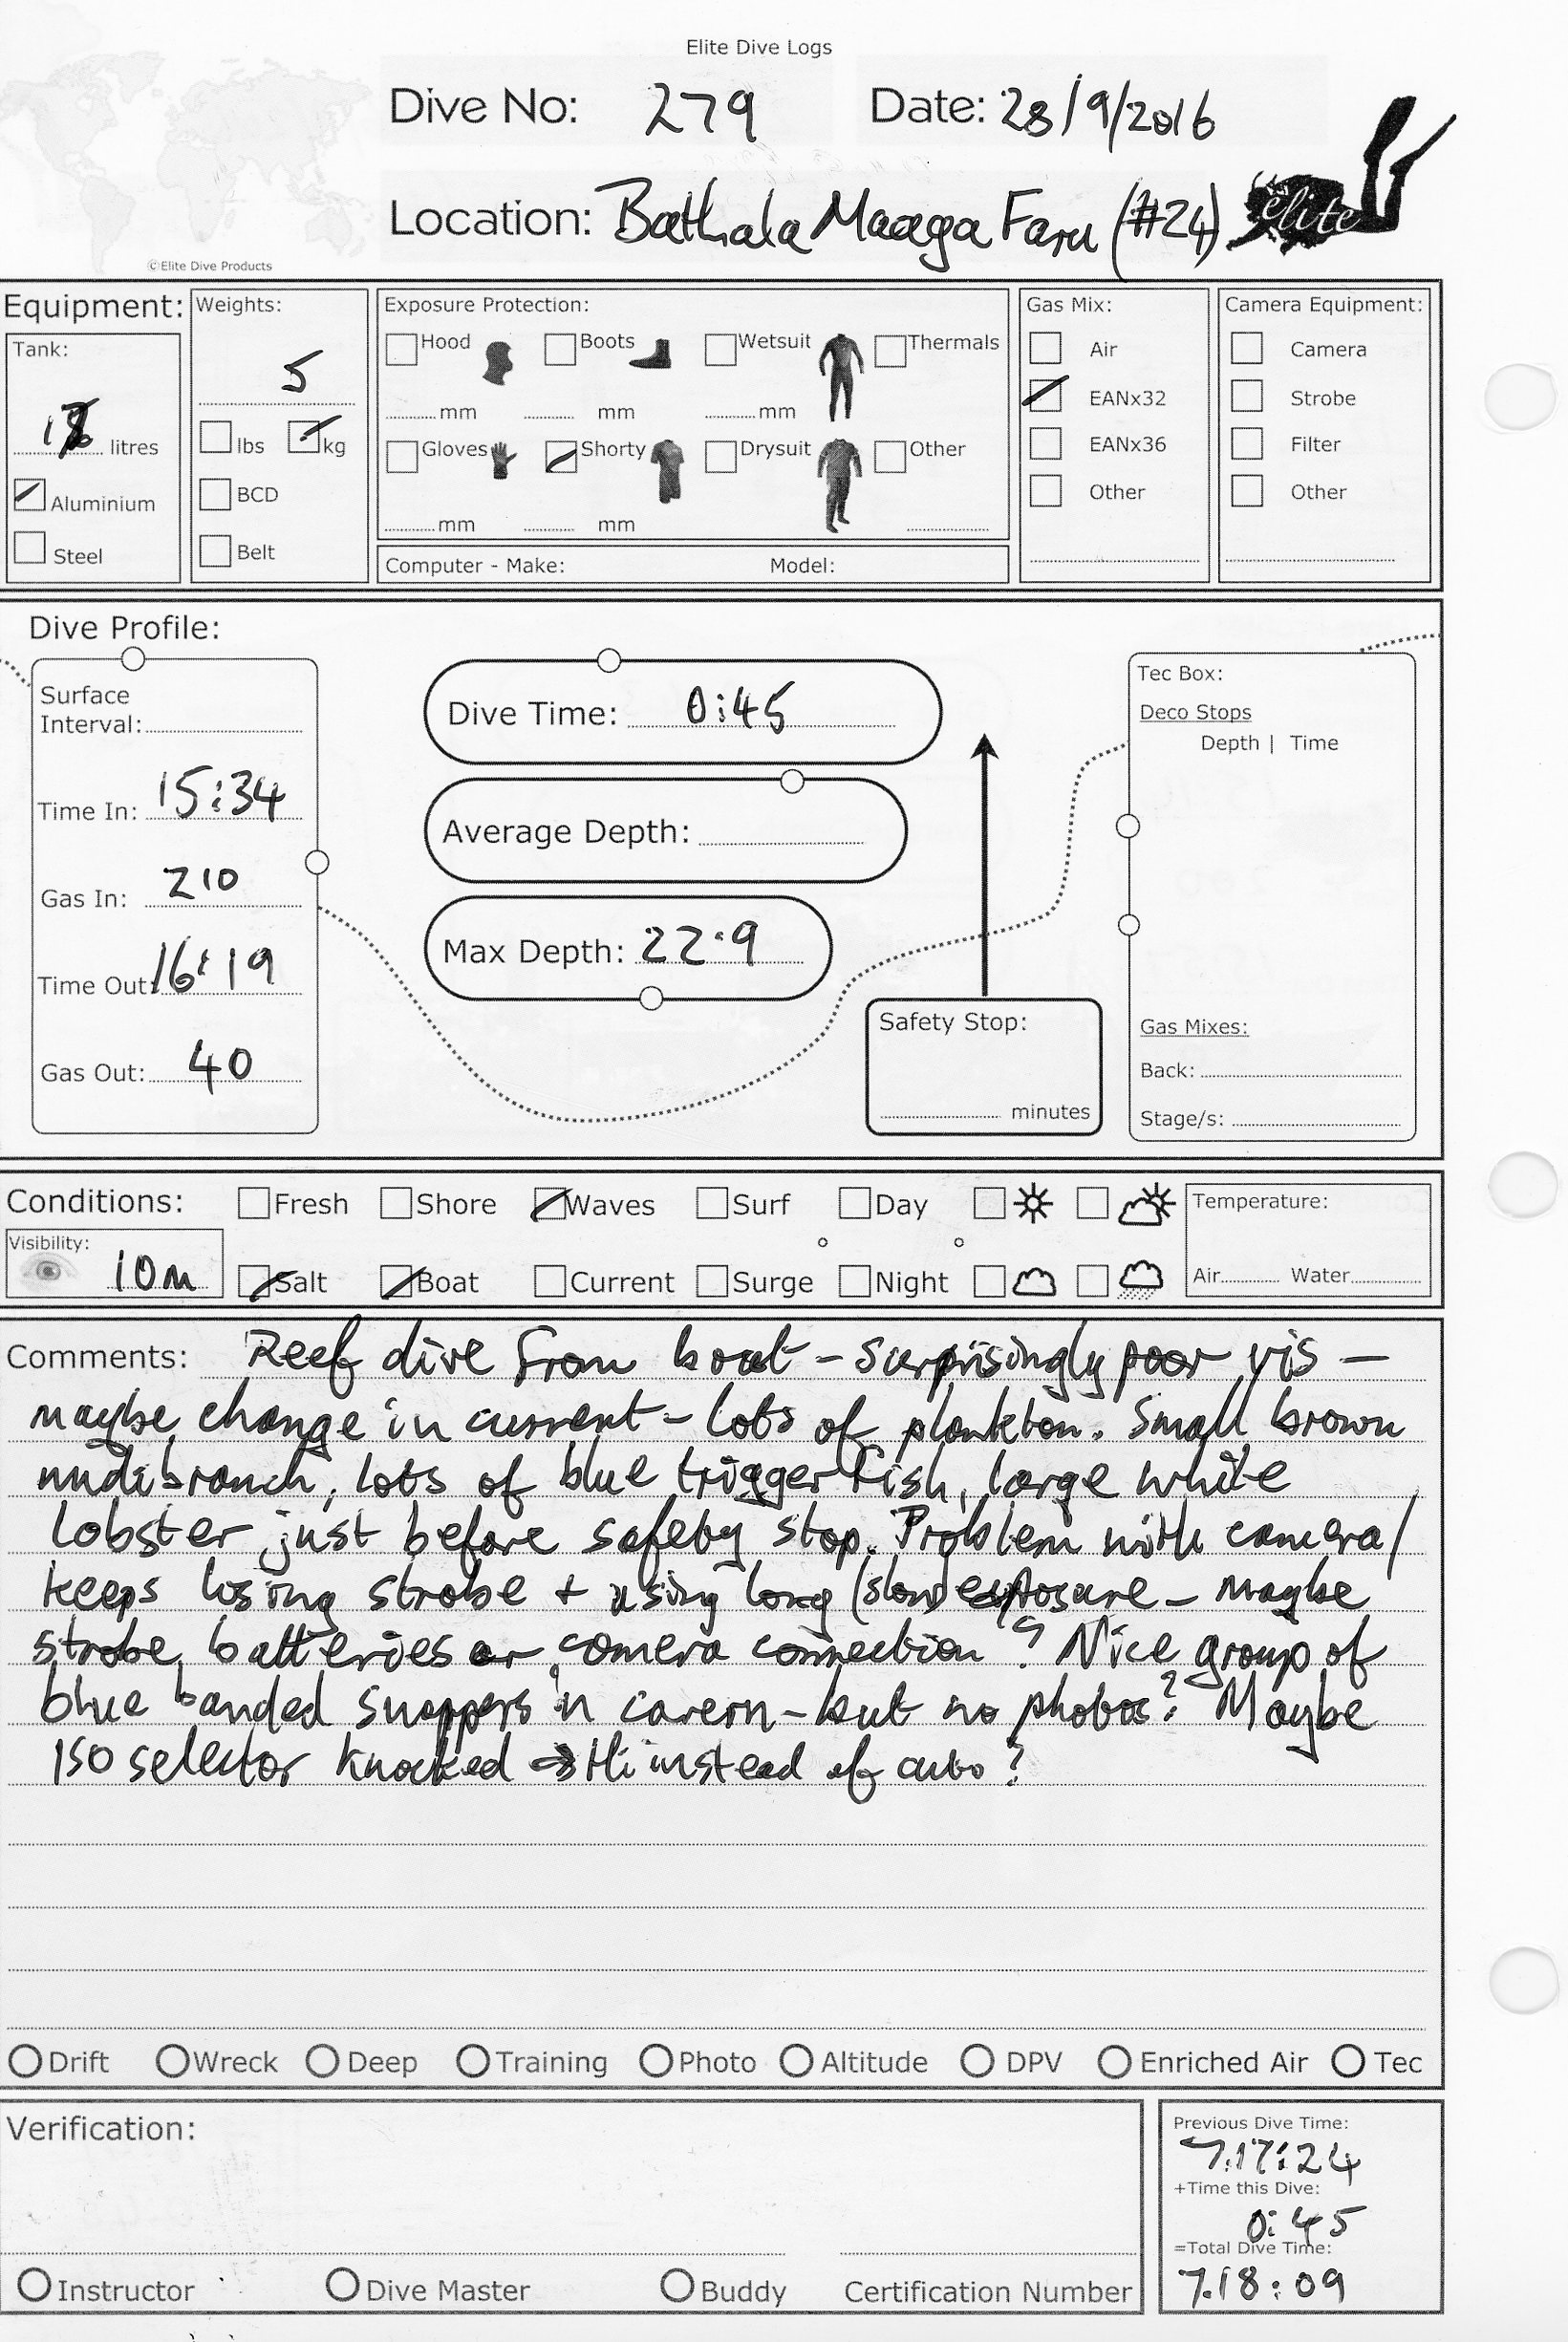 Elite Dive Logs
Dive No: 279 Date: 28/9/2016
Location: Bathala Maaga Faru (#24) elite
©Elite Dive Products
Equipment:
Tank:
litres
Aluminium
Steel
Weights:
5
lbs kg
BCD
Belt
Exposure Protection:
Hood Boots Wetsuit Thermals
mm mm mm
Gloves Shorty Drysuit Other
mm mm
Computer - Make: Model:
Gas Mix:
Air
EANx32
EANx36
Other
Camera Equipment:
Camera
Strobe
Filter
Other
Dive Profile:
Surface
Interval:
Time In: 15:34
Gas In: 210
Time Out: 16:19
Gas Out: 40
Dive Time: 0:45
Average Depth:
Max Depth: 22.9
Safety Stop:
minutes
Tec Box:
Deco Stops
Depth | Time
Gas Mixes:
Back:
Stage/s:
Conditions: Fresh Shore Waves Surf Day
Visibility: 10m
Salt Boat Current Surge Night
Temperature:
Air Water
Comments: Reef dive from boat - surprisingly poor vis -
maybe change in current - lots of plankton. Small brown
nudibranch, lots of blue trigger fish, large white
lobster just before safety stop. Problem with camera/
keeps losing strobe + using long (slow) exposure - maybe
strobe batteries or camera connection? Nice group of
blue banded snappers in cavern - but no photos? Maybe
ISO selector knocked → Hi instead of auto?
Drift Wreck Deep Training Photo Altitude DPV Enriched Air Tec
Verification:
Instructor Dive Master Buddy Certification Number
Previous Dive Time:
7.17:24
+Time this Dive:
0:45
=Total Dive Time:
7.18:09